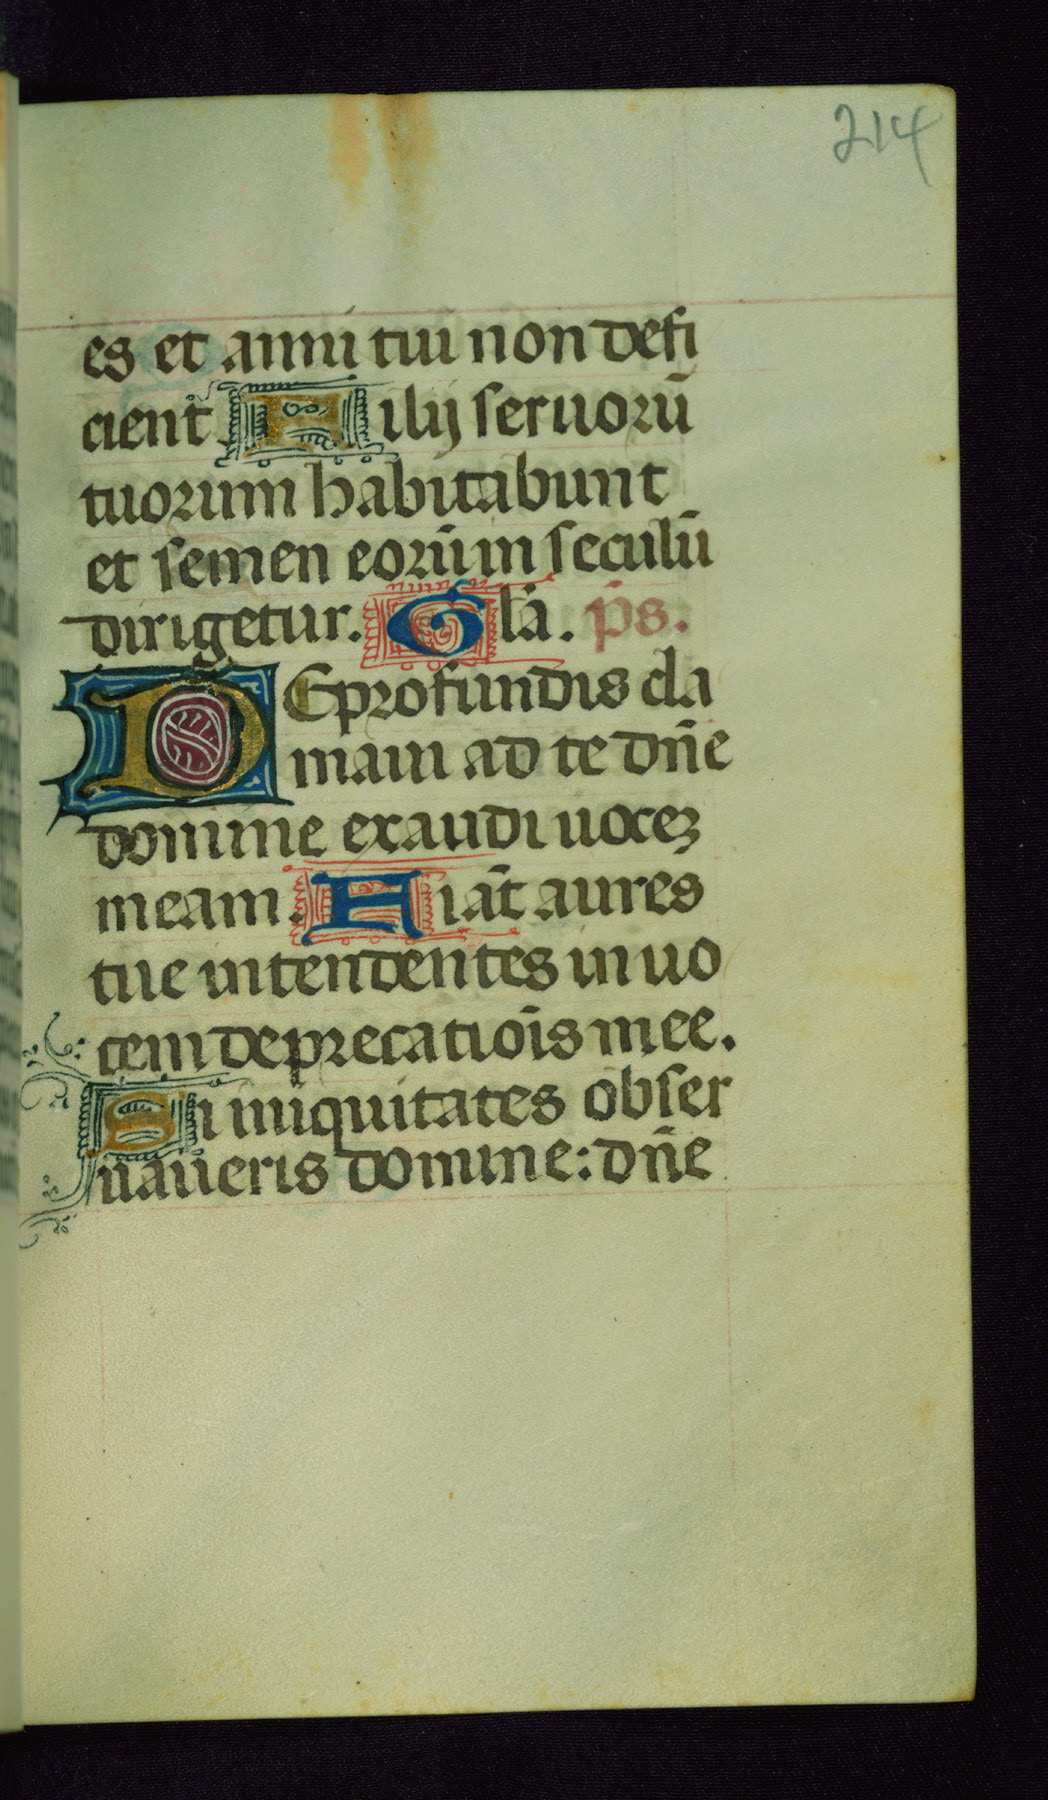 214
es et anni tui non defi
cient. Filij seruorū
tuorum habitabunt
et semen eorū in seculū
dirigetur. Gl̄a. p̄s.
DEprofundis cla
maui ad te dn̄e
domine exaudi uocez
meam. Fiāt aures
tue intendentes in uo
cem deprecatiōis mee.
Si iniquitates obser
uaueris domine: dn̄e